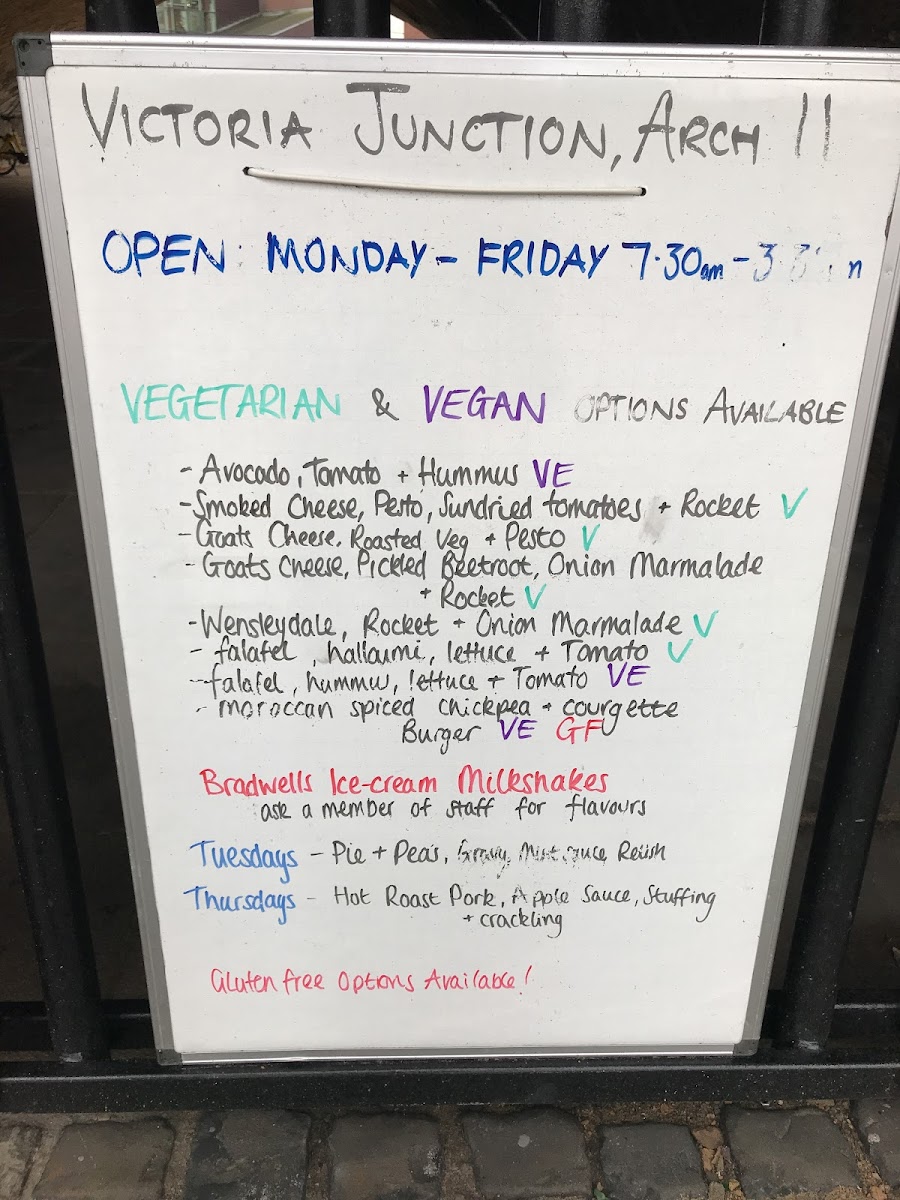 VICTORIA JUNCTION, ARCH 11
OPEN: MONDAY - FRIDAY 7.30am -
VEGETARIAN & VEGAN OPTIONS AVAILABLE
- Avocado, Tomato + Hummus VE
- Smoked Cheese, Pesto, Sundried tomatoes + Rocket V
- Goats Cheese, Roasted Veg + Pesto V
- Goats Cheese, Pickled Beetroot, Onion Marmalade
+ Rocket V
- Wensleydale, Rocket + Onion Marmalade V
- falafel, halloumi, lettuce + Tomato V
- falafel, hummus, lettuce + Tomato VE
- moroccan spiced chickpea + courgette
Burger VE GF
Bradwells Ice-cream Milkshakes
ask a member of staff for flavours
Tuesdays - Pie + Peas, Gravy, Mint sauce Relish
Thursdays - Hot Roast Pork, Apple Sauce, Stuffing
+ crackling
Gluten free Options Available!